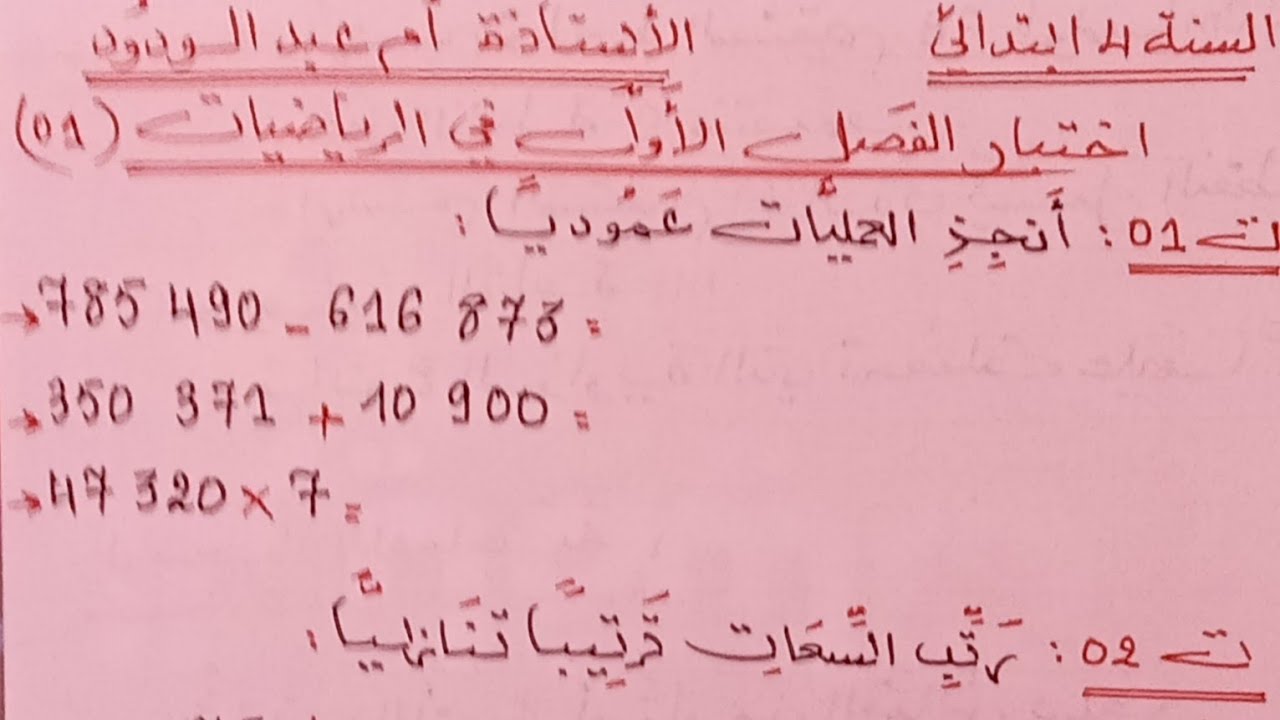 السنة 4 ابتدائي الأستاذة أم عبد الودود
اختبار الفصل الأول في الرياضيات (01)
ت 01 : أَنجِزِ العمليَّات عَمُوديًّا :
→ 785 490 - 616 873 =
→ 350 371 + 10 900 =
→ 47 320 × 7 =
ت 02 : رَتِّبِ السَّعَاتِ تَرتِيبًا تنَازليًّا :